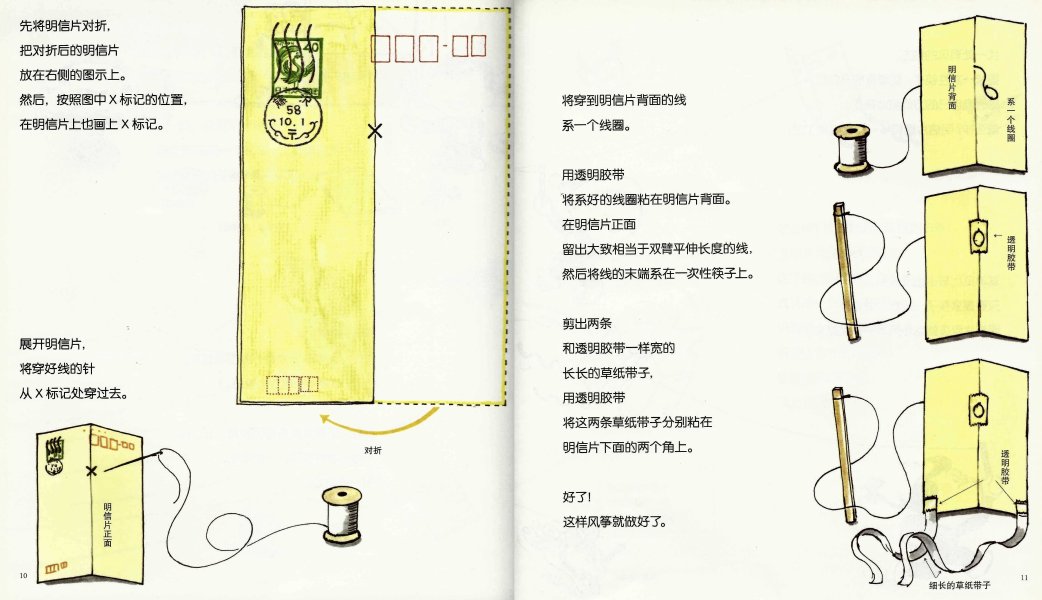 先将明信片对折，
把对折后的明信片
放在右侧的图示上。
然后，按照图中X标记的位置，
在明信片上也画上X标记。
40
58
10.1
对折
展开明信片，
将穿好线的针
从X标记处穿过去。
明信片正面
10
将穿到明信片背面的线
系一个线圈。
用透明胶带
将系好的线圈粘在明信片背面。
在明信片正面
留出大致相当于双臂平伸长度的线，
然后将线的末端系在一次性筷子上。
剪出两条
和透明胶带一样宽的
长长的草纸带子，
用透明胶带
将这两条草纸带子分别粘在
明信片下面的两个角上。
好了！
这样风筝就做好了。
明信片背面
系一个线圈
透明胶带
透明胶带
细长的草纸带子
11